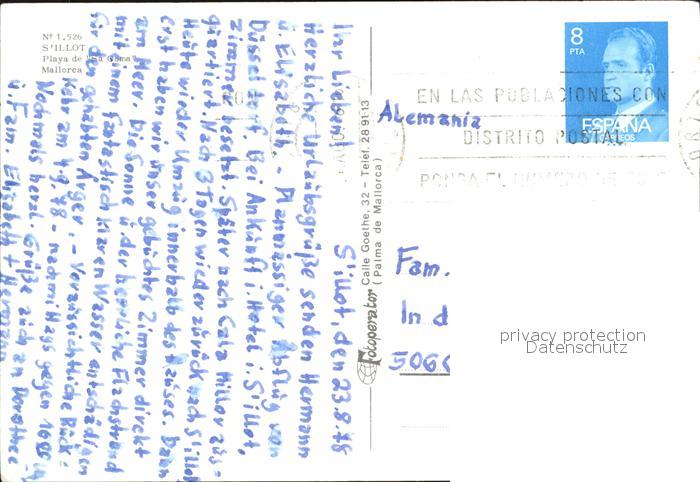 Nº 1.526
S'ILLOT
Playa de "Sa Coma"
Mallorca
Sillot, den 23.8.78
Ihr Lieben!
Herzliche Urlaubsgrüße senden Hermann
u. Elisabeth. - Planmässiger Abflug von
Düsseldorf. Bei Ankunft i. Hotel i. Sillot,
Zimmer besetzt. Später nach Cala Millor aus-
quartiert. Nach 3 Tagen wieder zurück nach Sillot
Heute wieder Umzug innerhalb des Hauses. Dann
erst haben wir unser gebuchtes Zimmer direkt
am Meer. Die Sonne u. der herrliche Flachstrand
mit einem fantastisch klaren Wasser entschädigen
für den gehabten Ärger. - Voraussichtliche Rück-
kehr am 4.9.78 - nachmittags gegen 16 00
Nochmals herzl. Grüße auch an Dorothee
u. Fam. Elisabeth + Hermann
Fotoperator Calle Goethe, 32 - Teléf. 28 91 13
(Palma de Mallorca)
8
PTA
ESPAÑA
CORREOS
EN LAS POBLACIONES CON
DISTRITO POSTAL
PONGA EL NUMERO DE
Alemania
Fam.
In d
506
privacy protection
Datenschutz